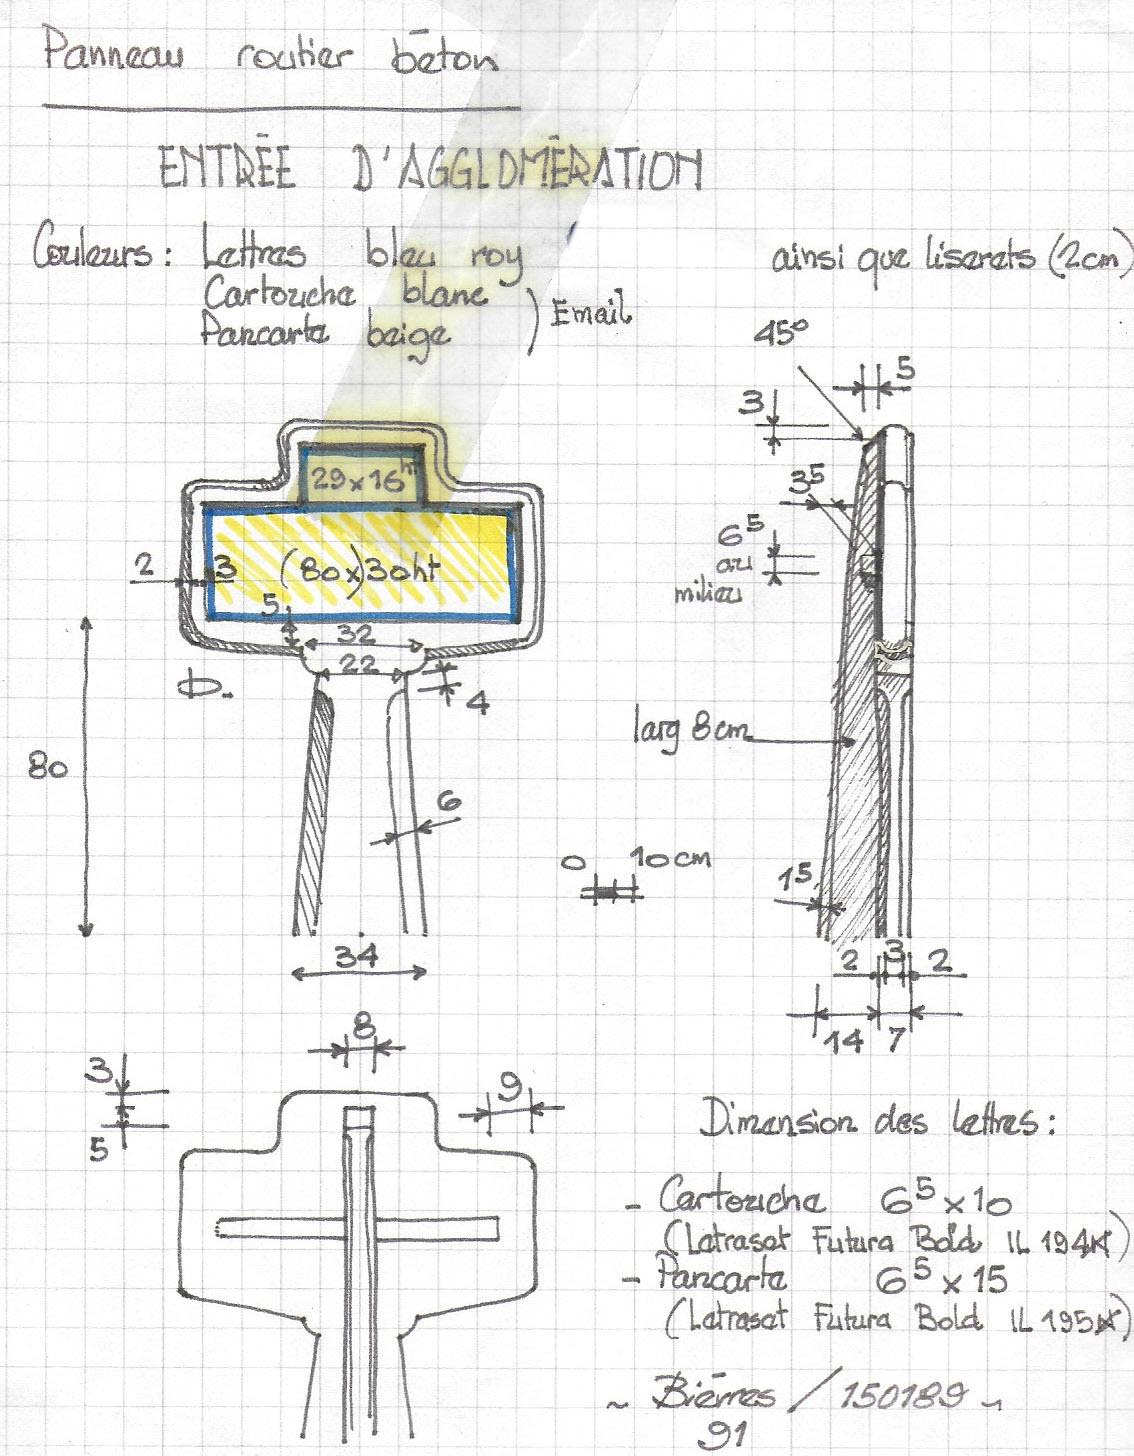 Panneau routier béton
ENTRÉE D'AGGLOMÉRATION
Couleurs : Lettres bleu roy ainsi que liserets (2cm)
Cartouche blanc
Pancarte beige
) Email
45°
5
3
29 x 16 ht
3⁵
6⁵
au
milieu
2
3
(80x)30ht
5
32
22
4
80
larg 8cm
6
0 10cm
1⁵
34
2 3 2
14 7
8
3
9
5
Dimension des lettres :
- Cartouche 6⁵ x 10
(Letraset Futura Bold IL 194)
- Pancarte 6⁵ x 15
(Letraset Futura Bold IL 195)
~ Bièrres / 150189 ~
91